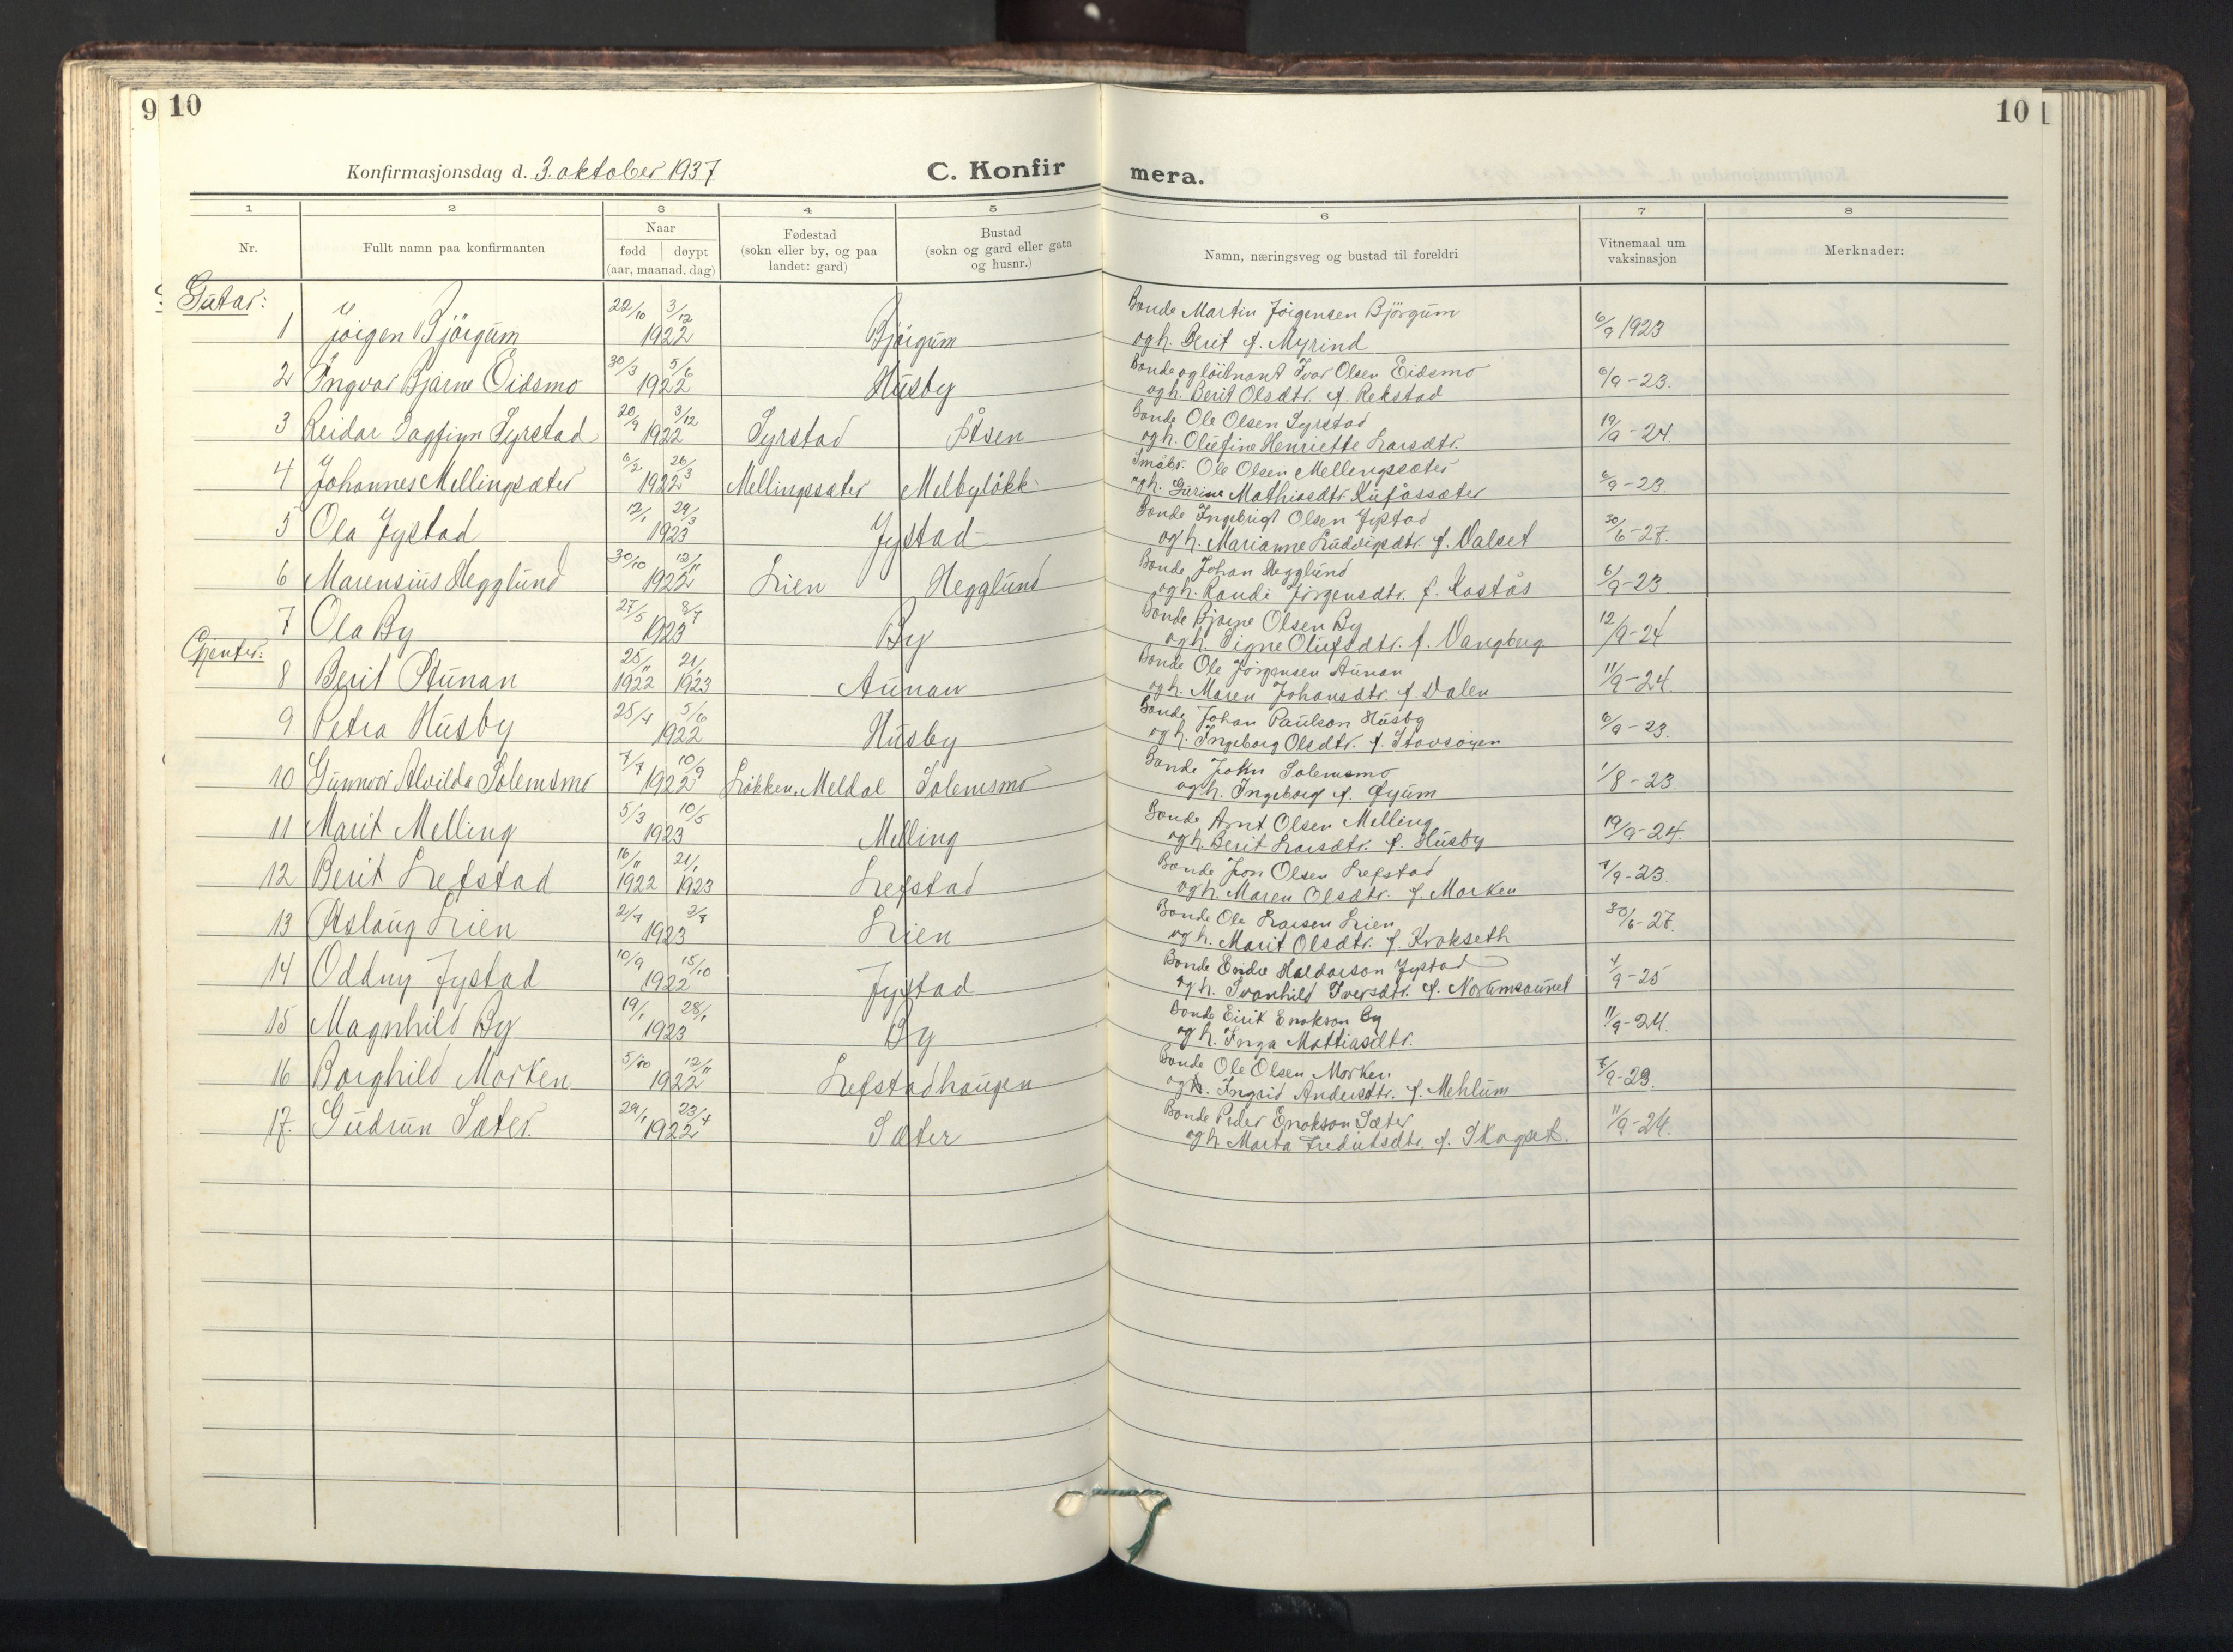 9 10
10
Konfirmasjonsdag d. 3. oktober 1937
C. Konfir mera.
1 2 3 4 5 6 7 8
Nr. Fullt namn paa konfirmanten Naar fødd døypt (aar, maanad. dag) Fødestad (sokn eller by, og paa landet: gard) Bustad (sokn og gard eller gata og husnr.) Namn, næringsveg og bustad til foreldri Vitnemaal um vaksinasjon Merknader:
Gutar:
1 Jörgen Björgum 22/10 3/12 1922 Björgum Bonde Martin Jörgensen Björgum 6/9 1923
og h. Berit f. Myrind
2 Ingvar Bjarne Eidsmo 30/3 5/6 1922 Husby Bonde og löitnant Ivar Olsen Eidsmo 6/9-23.
og h. Berit Olsdtr. f. Rekstad
3 Reidar Dagfinn Syrstad 20/9 3/12 1922 Syrstad Åsen Bonde Ole Olsen Syrstad 19/9-24.
og h. Olufine Henriette Larsdtr.
4 Johannes Mellingsæter 6/2 26/3 1922 Mellingsæter Melbylökk Småbr. Ole Olsen Mellingsæter 6/9-23.
og h. Gurine Mathiasdtr. Rufåssæter
5 Ola Jystad 12/1 29/3 1923 Jystad Bonde Ingebrigt Olsen Jystad 30/6-27.
og h. Marianne Ludvigsdtr. f. Valset
6 Marensius Hegglund 30/10 12/11 1922 Lien Hegglund Bonde Johan Hegglund 6/9-23
og h. Randi Jörgensdtr. f. Kastås
7 Ola By 27/5 8/7 1923 By Bonde Bjarne Olsen By 12/9-24
og h. Signe Olufsdtr. f. Vangberg
Gjentor:
8 Berit Aunan 25/11 1922 21/1 1923 Aunan Bonde Ole Jörgensen Aunan 11/9-24.
og h. Maren Johansdtr. f. Dalen
9 Petra Husby 25/4 5/6 1922 Husby Bonde Johan Paulson Husby 6/9-23.
og h. Ingeborg Olsdtr. f. Stavsöien
10 Gunnor Alvilda Solemsmo 7/7 10/9 1922 Løkken, Meldal Solemsmo Bonde John Solemsmo 1/8-23.
og h. Ingeborg f. Gjum
11 Marit Melling 5/3 10/5 1923 Melling Bonde Arnt Olsen Melling 19/9-24.
og h. Berit Larsdtr. f. Husby
12 Berit Lefstad 16/11 1922 21/1 1923 Lefstad Bonde Jon Olsen Lefstad 7/9-23.
og h. Maren Olsdtr. f. Morken
13 Aslaug Lien 1923 Lien Bonde Ole Larsen Lien 30/6-27.
og h. Marit Olsdtr. f. Krokseth
14 Oddny Jystad 10/9 15/10 1922 Jystad Bonde Endre Haldorson Jystad 4/9-25
og h. Svanhild Iversdtr. f. Norumsaunet
15 Magnhild By 19/1 28/1 1923 By Bonde Eirik Enokson By 11/9-24.
og h. Inga Mattiasdtr.
16 Borghild Morken 5/10 12/11 1922 Lefstadhaugen Bonde Ole Olsen Morken 7/9-23.
og h. Ingrid Andersdtr. f. Mehlum
17. Gudrun Sæter. 29/1 23/4 1922 Sæter Bonde Peder Enokson Sæter 11/9-24.
og h. Marta Fredriksdtr. f. Skogset.